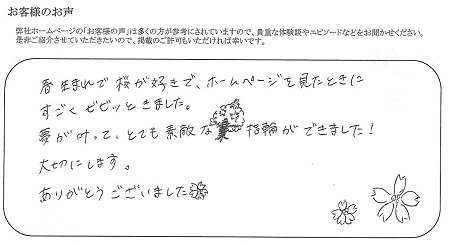 お客様のお声
弊社ホームページの「お客様の声」は多くの方が参考にされていますので、貴重な体験談やエピソードなどをお聞かせください。
是非ご紹介させていただきたいので、掲載のご許可もいただければ幸いです。
春生まれで桜が好きで、ホームページを見たときに
すごくビビッときました。
夢が叶って、とても素敵な指輪ができました!
大切にします。
ありがとうございました